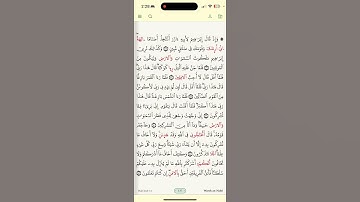 2:29
وَإِذْ قَالَ إِبْرَٰهِيمُ لِأَبِيهِ ءَازَرَ أَتَتَّخِذُ أَصْنَامًا ءَالِهَةً
إِنِّىٓ أَرَىٰكَ وَقَوْمَكَ فِى ضَلَٰلٍ مُّبِينٍ وَكَذَٰلِكَ نُرِىٓ
إِبْرَٰهِيمَ مَلَكُوتَ ٱلسَّمَٰوَٰتِ وَٱلْأَرْضِ وَلِيَكُونَ مِنَ
ٱلْمُوقِنِينَ فَلَمَّا جَنَّ عَلَيْهِ ٱلَّيْلُ رَءَا كَوْكَبًا قَالَ هَٰذَا رَبِّى
فَلَمَّآ أَفَلَ قَالَ لَآ أُحِبُّ ٱلْءَافِلِينَ فَلَمَّا رَءَا ٱلْقَمَرَ بَازِغًا
قَالَ هَٰذَا رَبِّى فَلَمَّآ أَفَلَ قَالَ لَئِن لَّمْ يَهْدِنِى رَبِّى لَأَكُونَنَّ
مِنَ ٱلْقَوْمِ ٱلضَّآلِّينَ فَلَمَّا رَءَا ٱلشَّمْسَ بَازِغَةً قَالَ هَٰذَا
رَبِّى هَٰذَآ أَكْبَرُ فَلَمَّآ أَفَلَتْ قَالَ يَٰقَوْمِ إِنِّى بَرِىٓءٌ مِّمَّا
تُشْرِكُونَ إِنِّى وَجَّهْتُ وَجْهِىَ لِلَّذِى فَطَرَ ٱلسَّمَٰوَٰتِ
وَٱلْأَرْضَ حَنِيفًا وَمَآ أَنَا۠ مِنَ ٱلْمُشْرِكِينَ وَحَآجَّهُۥ
قَوْمُهُۥ قَالَ أَتُحَٰٓجُّوٓنِّى فِى ٱللَّهِ وَقَدْ هَدَىٰنِ وَلَآ أَخَافُ مَا
تُشْرِكُونَ بِهِۦٓ إِلَّآ أَن يَشَآءَ رَبِّى شَيْـًٔا وَسِعَ رَبِّى كُلَّ شَىْءٍ
عِلْمًا أَفَلَا تَتَذَكَّرُونَ وَكَيْفَ أَخَافُ مَآ أَشْرَكْتُمْ وَلَا
تَخَافُونَ أَنَّكُمْ أَشْرَكْتُم بِٱللَّهِ مَا لَمْ يُنَزِّلْ بِهِۦ عَلَيْكُمْ
سُلْطَٰنًا فَأَىُّ ٱلْفَرِيقَيْنِ أَحَقُّ بِٱلْأَمْنِ إِن كُنتُمْ تَعْلَمُونَ